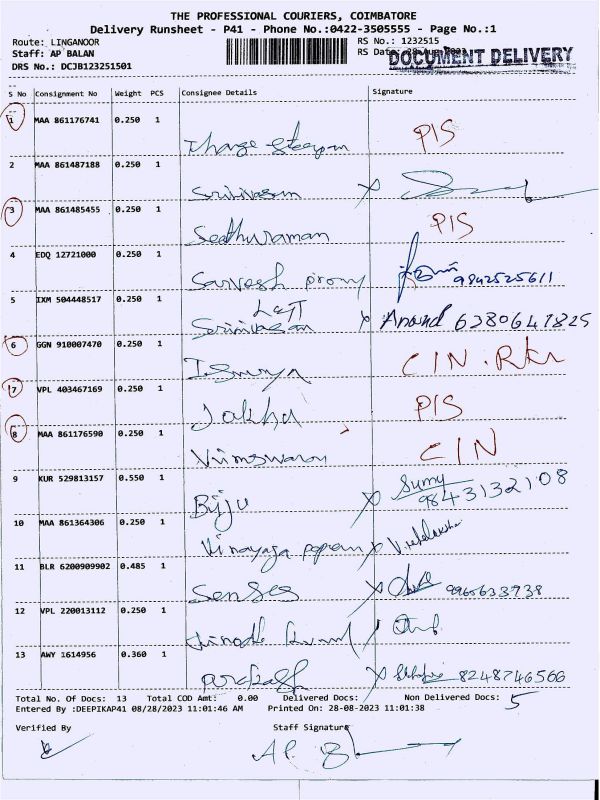 THE PROFESSIONAL COURIERS, COIMBATORE
Delivery Runsheet - P41 - Phone No.:0422-3505555 - Page No.:1
Route: LINGANOOR RS No.: 1232515
Staff: AP BALAN RS Date: DOCUMENT DELIVERY
DRS No.: DCJB123251501
S No Consignment No Weight PCS Consignee Details Signature
1 MAA 861176741 0.250 1
PIS
2 MAA 861487188 0.250 1
Srinivasan X
3 MAA 861485455 0.250 1
Seethuraman PIS
4 EDQ 12721000 0.250 1
Sarvesh 9842525611
5 IXM 504448517 0.250 1
Srinivasan X Anand 6380641825
6 GGN 910007470 0.250 1
CIN.
7 VPL 403467169 0.250 1
PIS
8 MAA 861176590 0.250 1
CIN
9 KUR 529813157 0.550 1
Biju X Sumy 9843132108
10 MAA 861364306 0.250 1
Vinayaga X
11 BLR 6200909902 0.485 1
Senses X
12 VPL 220013112 0.250 1
13 AWY 1614956 0.360 1
Prakash X 8248746566
Total No. Of Docs: 13 Total COD Amt: 0.00 Delivered Docs: Non Delivered Docs: 5
Entered By :DEEPIKAP41 08/28/2023 11:01:46 AM Printed On: 28-08-2023 11:01:38
Verified By Staff Signature